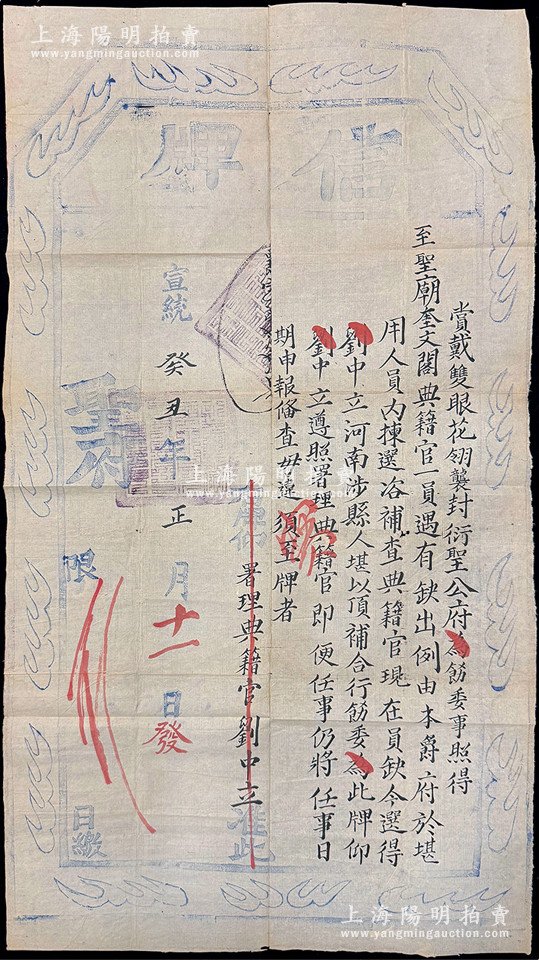 上海陽明拍賣
www.yangmingauction.com
信牌
賞戴雙眼花翎襲封衍聖公府為飭委事照得
至聖廟奎文閣典籍官一員遇有缺出例由本爵府於堪
用人員內揀選咨補查典籍官現在員缺今選得
劉中立河南涉縣人堪以頂補合行飭委為此牌仰
劉中立遵照署理典籍官即便任事仍將任事日
期申報備查毋違須至牌者
牌仰署理典籍官劉中立准此
宣統癸丑年正月十一日發
聖府
限
日繳
上海陽明拍賣
www.yangmingauction.com
上海陽明拍賣
www.yangmingauction.com